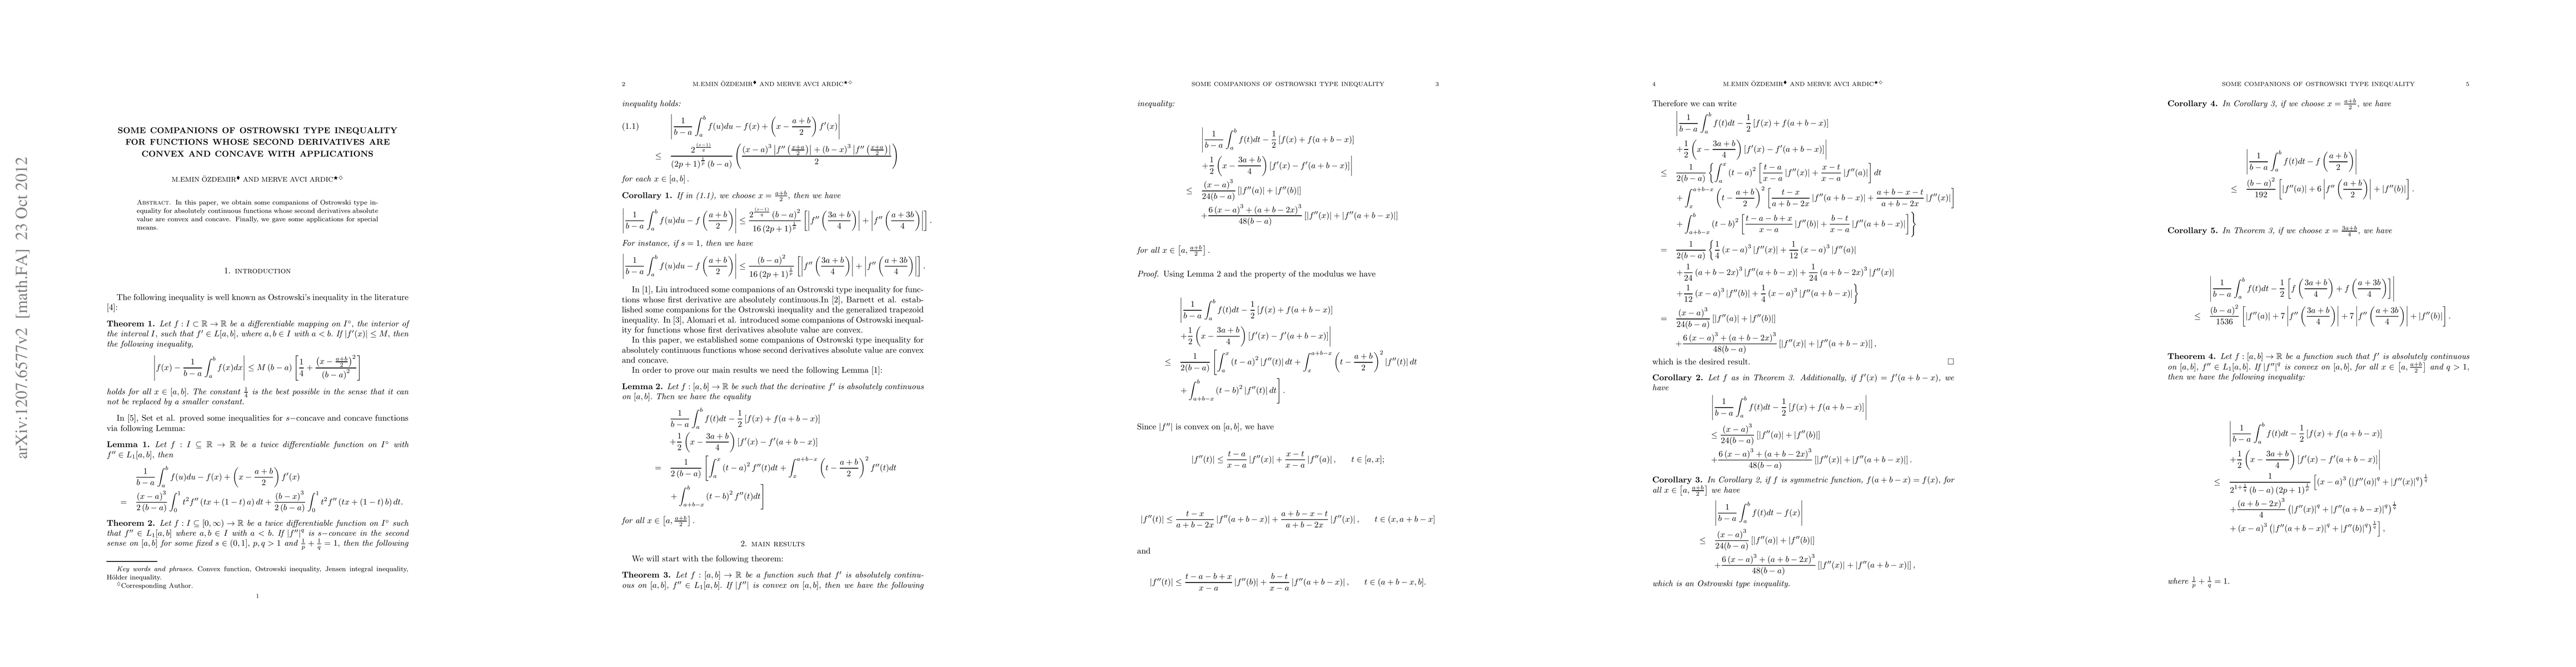 arXiv:1207.6577v2 [math.FA] 23 Oct 2012
SOME COMPANIONS OF OSTROWSKI TYPE INEQUALITY
FOR FUNCTIONS WHOSE SECOND DERIVATIVES ARE
CONVEX AND CONCAVE WITH APPLICATIONS
M.EMIN ÖZDEMIR♦ AND MERVE AVCI ARDIC★◇
Abstract. In this paper, we obtain some companions of Ostrowski type in-
equality for absolutely continuous functions whose second derivatives absolute
value are convex and concave. Finally, we gave some applications for special
means.
1. introduction
The following inequality is well known as Ostrowski's inequality in the literature
[4]:
Theorem 1. Let f : I ⊂ ℝ → ℝ be a differentiable mapping on I°, the interior of
the interval I, such that f′ ∈ L[a, b], where a, b ∈ I with a < b. If |f′(x)| ≤ M, then
the following inequality,
|f(x) − 1/(b−a) ∫_a^b f(x)dx| ≤ M (b − a) [1/4 + (x − (a+b)/2)² / (b−a)²]
holds for all x ∈ [a, b]. The constant 1/4 is the best possible in the sense that it can
not be replaced by a smaller constant.
In [5], Set et al. proved some inequalities for s−concave and concave functions
via following Lemma:
Lemma 1. Let f : I ⊆ ℝ → ℝ be a twice differentiable function on I° with
f″ ∈ L₁[a, b], then
1/(b−a) ∫_a^b f(u)du − f(x) + (x − (a+b)/2) f′(x)
= (x−a)³/(2(b−a)) ∫_0^1 t² f″(tx + (1−t) a) dt + (b−x)³/(2(b−a)) ∫_0^1 t² f″(tx + (1−t) b) dt.
Theorem 2. Let f : I ⊆ [0, ∞) → ℝ be a twice differentiable function on I° such
that f″ ∈ L₁[a, b] where a, b ∈ I with a < b. If |f″|^q is s−concave in the second
sense on [a, b] for some fixed s ∈ (0, 1], p, q > 1 and 1/p + 1/q = 1, then the following
Key words and phrases. Convex function, Ostrowski inequality, Jensen integral inequality,
Hölder inequality.
◇Corresponding Author.
1
2 M.EMIN ÖZDEMIR♦ AND MERVE AVCI ARDIC★◇
inequality holds:
(1.1) |1/(b−a) ∫_a^b f(u)du − f(x) + (x − (a+b)/2) f′(x)|
≤ 2^((s−1)/q) / ((2p+1)^(1/p) (b−a)) ( ((x−a)³ |f″((x+a)/2)| + (b−x)³ |f″((x+a)/2)|) / 2 )
for each x ∈ [a, b].
Corollary 1. If in (1.1), we choose x = (a+b)/2, then we have
|1/(b−a) ∫_a^b f(u)du − f((a+b)/2)| ≤ 2^((s−1)/q) (b−a)² / (16 (2p+1)^(1/p)) [|f″((3a+b)/4)| + |f″((a+3b)/4)|].
For instance, if s = 1, then we have
|1/(b−a) ∫_a^b f(u)du − f((a+b)/2)| ≤ (b−a)² / (16 (2p+1)^(1/p)) [|f″((3a+b)/4)| + |f″((a+3b)/4)|].
In [1], Liu introduced some companions of an Ostrowski type inequality for func-
tions whose first derivative are absolutely continuous.In [2], Barnett et al. estab-
lished some companions for the Ostrowski inequality and the generalized trapezoid
inequality. In [3], Alomari et al. introduced some companions of Ostrowski inequal-
ity for functions whose first derivatives absolute value are convex.
In this paper, we established some companions of Ostrowski type inequality for
absolutely continuous functions whose second derivatives absolute value are convex
and concave.
In order to prove our main results we need the following Lemma [1]:
Lemma 2. Let f : [a, b] → ℝ be such that the derivative f′ is absolutely continuous
on [a, b]. Then we have the equality
1/(b−a) ∫_a^b f(t)dt − 1/2 [f(x) + f(a + b − x)]
+1/2 (x − (3a+b)/4) [f′(x) − f′(a + b − x)]
= 1/(2(b−a)) [∫_a^x (t−a)² f″(t)dt + ∫_x^(a+b−x) (t − (a+b)/2)² f″(t)dt
+ ∫_(a+b−x)^b (t−b)² f″(t)dt]
for all x ∈ [a, (a+b)/2].
2. main results
We will start with the following theorem:
Theorem 3. Let f : [a, b] → ℝ be a function such that f′ is absolutely continu-
ous on [a, b], f″ ∈ L₁[a, b]. If |f″| is convex on [a, b], then we have the following
SOME COMPANIONS OF OSTROWSKI TYPE INEQUALITY 3
inequality:
|1/(b−a) ∫_a^b f(t)dt − 1/2 [f(x) + f(a + b − x)]
+1/2 (x − (3a+b)/4) [f′(x) − f′(a + b − x)]|
≤ (x−a)³/(24(b−a)) [|f″(a)| + |f″(b)|]
+ (6(x−a)³ + (a+b−2x)³)/(48(b−a)) [|f″(x)| + |f″(a + b − x)|]
for all x ∈ [a, (a+b)/2].
Proof. Using Lemma 2 and the property of the modulus we have
|1/(b−a) ∫_a^b f(t)dt − 1/2 [f(x) + f(a + b − x)]
+1/2 (x − (3a+b)/4) [f′(x) − f′(a + b − x)]|
≤ 1/(2(b−a)) [∫_a^x (t−a)² |f″(t)| dt + ∫_x^(a+b−x) (t − (a+b)/2)² |f″(t)| dt
+ ∫_(a+b−x)^b (t−b)² |f″(t)| dt].
Since |f″| is convex on [a, b], we have
|f″(t)| ≤ (t−a)/(x−a) |f″(x)| + (x−t)/(x−a) |f″(a)|, t ∈ [a, x];
|f″(t)| ≤ (t−x)/(a+b−2x) |f″(a + b − x)| + (a+b−x−t)/(a+b−2x) |f″(x)|, t ∈ (x, a + b − x]
and
|f″(t)| ≤ (t−a−b+x)/(x−a) |f″(b)| + (b−t)/(x−a) |f″(a + b − x)|, t ∈ (a + b − x, b].
4 M.EMIN ÖZDEMIR♦ AND MERVE AVCI ARDIC★◇
Therefore we can write
|1/(b−a) ∫_a^b f(t)dt − 1/2 [f(x) + f(a + b − x)]
+1/2 (x − (3a+b)/4) [f′(x) − f′(a + b − x)]|
≤ 1/(2(b−a)) {∫_a^x (t−a)² [(t−a)/(x−a) |f″(x)| + (x−t)/(x−a) |f″(a)|] dt
+ ∫_x^(a+b−x) (t − (a+b)/2)² [(t−x)/(a+b−2x) |f″(a + b − x)| + (a+b−x−t)/(a+b−2x) |f″(x)|]
+ ∫_(a+b−x)^b (t−b)² [(t−a−b+x)/(x−a) |f″(b)| + (b−t)/(x−a) |f″(a + b − x)|]}
= 1/(2(b−a)) {1/4 (x−a)³ |f″(x)| + 1/12 (x−a)³ |f″(a)|
+1/24 (a+b−2x)³ |f″(a + b − x)| + 1/24 (a+b−2x)³ |f″(x)|
+1/12 (x−a)³ |f″(b)| + 1/4 (x−a)³ |f″(a + b − x)|}
= (x−a)³/(24(b−a)) [|f″(a)| + |f″(b)|]
+ (6(x−a)³ + (a+b−2x)³)/(48(b−a)) [|f″(x)| + |f″(a + b − x)|],
which is the desired result. □
Corollary 2. Let f as in Theorem 3. Additionally, if f′(x) = f′(a + b − x), we
have
|1/(b−a) ∫_a^b f(t)dt − 1/2 [f(x) + f(a + b − x)]|
≤ (x−a)³/(24(b−a)) [|f″(a)| + |f″(b)|]
+ (6(x−a)³ + (a+b−2x)³)/(48(b−a)) [|f″(x)| + |f″(a + b − x)|].
Corollary 3. In Corollary 2, if f is symmetric function, f(a + b − x) = f(x), for
all x ∈ [a, (a+b)/2] we have
|1/(b−a) ∫_a^b f(t)dt − f(x)|
≤ (x−a)³/(24(b−a)) [|f″(a)| + |f″(b)|]
+ (6(x−a)³ + (a+b−2x)³)/(48(b−a)) [|f″(x)| + |f″(a + b − x)|],
which is an Ostrowski type inequality.
SOME COMPANIONS OF OSTROWSKI TYPE INEQUALITY 5
Corollary 4. In Corollary 3, if we choose x = (a+b)/2, we have
|1/(b−a) ∫_a^b f(t)dt − f((a+b)/2)|
≤ (b−a)²/192 [|f″(a)| + 6 |f″((a+b)/2)| + |f″(b)|].
Corollary 5. In Theorem 3, if we choose x = (3a+b)/4, we have
|1/(b−a) ∫_a^b f(t)dt − 1/2 [f((3a+b)/4) + f((a+3b)/4)]|
≤ (b−a)²/1536 [|f″(a)| + 7 |f″((3a+b)/4)| + 7 |f″((a+3b)/4)| + |f″(b)|].
Theorem 4. Let f : [a, b] → ℝ be a function such that f′ is absolutely continuous
on [a, b], f″ ∈ L₁[a, b]. If |f″|^q is convex on [a, b], for all x ∈ [a, (a+b)/2] and q > 1,
then we have the following inequality:
|1/(b−a) ∫_a^b f(t)dt − 1/2 [f(x) + f(a + b − x)]
+1/2 (x − (3a+b)/4) [f′(x) − f′(a + b − x)]|
≤ 1/(2^(1+1/q) (b−a) (2p+1)^(1/p)) [(x−a)³ (|f″(a)|^q + |f″(x)|^q)^(1/q)
+ (a+b−2x)³/4 (|f″(x)|^q + |f″(a + b − x)|^q)^(1/q)
+ (x−a)³ (|f″(a + b − x)|^q + |f″(b)|^q)^(1/q)],
where 1/p + 1/q = 1.